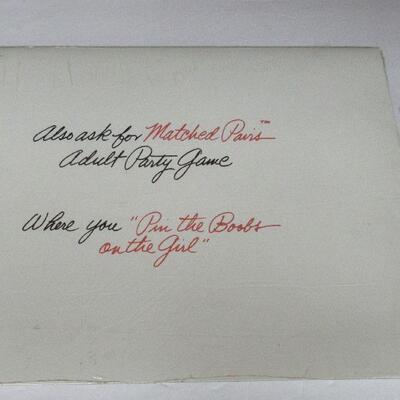 Also ask for Matched Pairs™
Adult Party Game
Where you "Pin the Boobs
on the Girl"